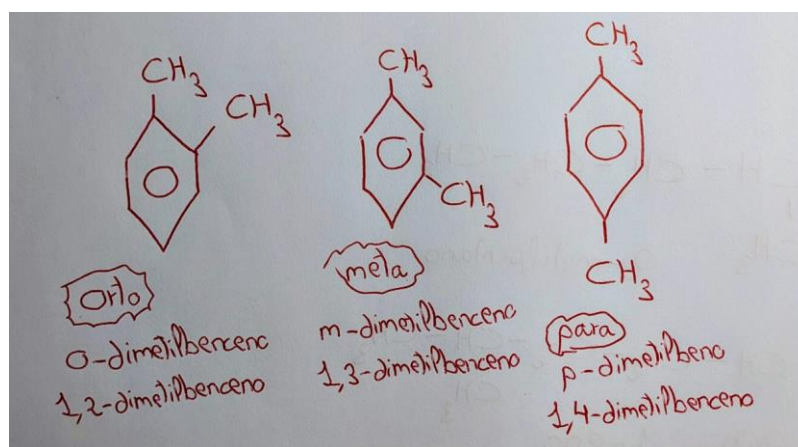 CH3
CH3
Orto
o-dimetilbenceno
1,2-dimetilbenceno
CH3
CH3
meta
m-dimetilbenceno
1,3-dimetilbenceno
CH3
CH3
para
p-dimetilbeno
1,4-dimetilbenceno